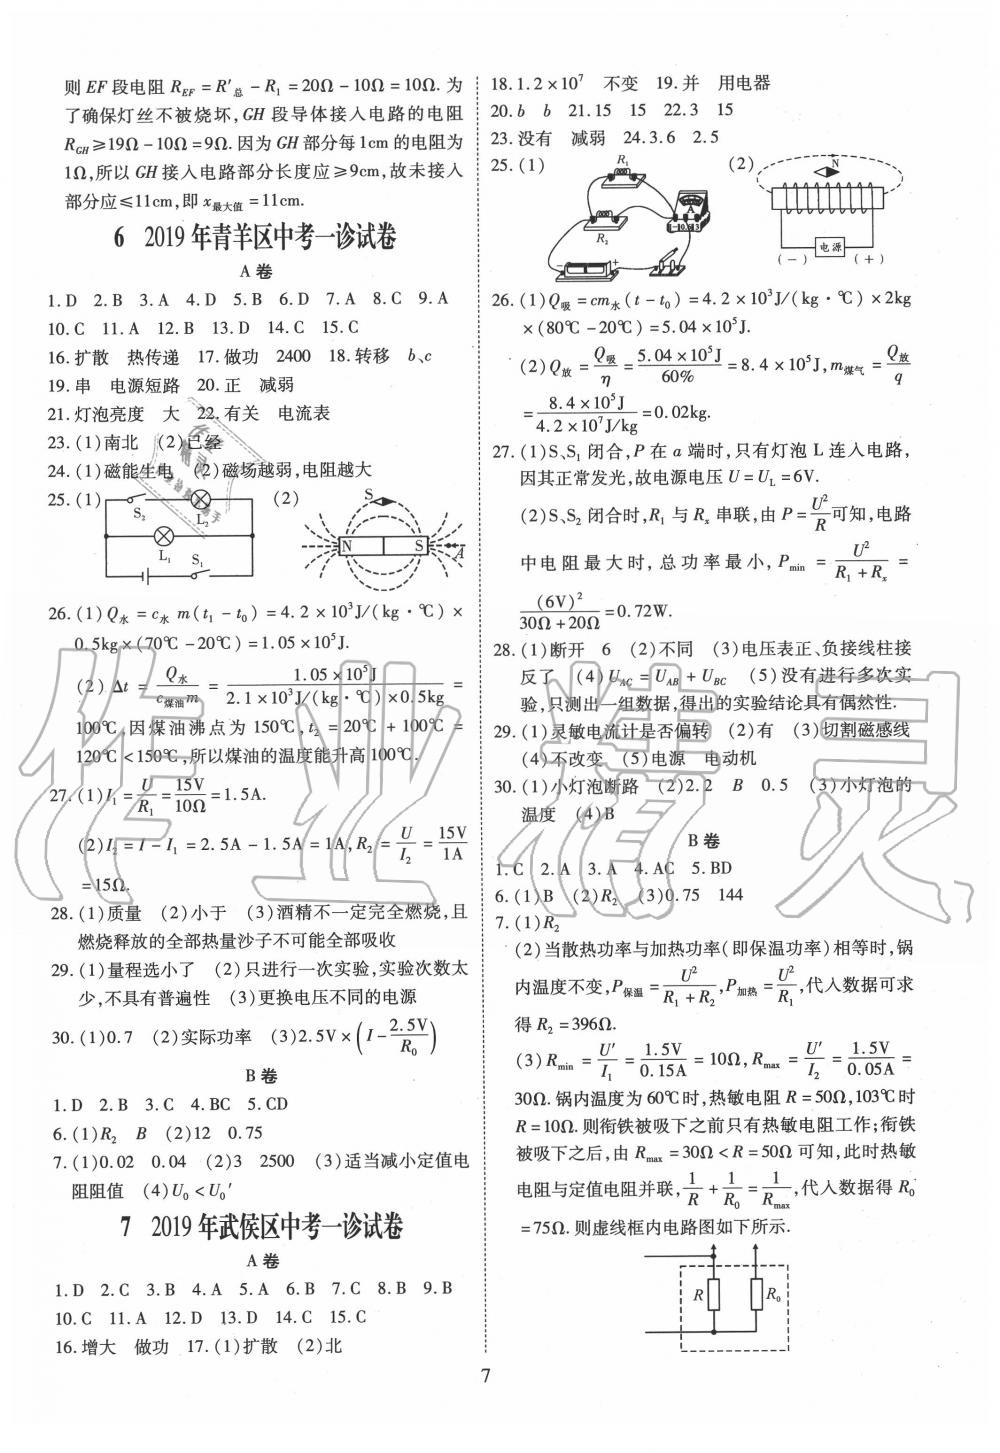 则 EF 段电阻 R_EF = R'_总 - R₁ = 20Ω - 10Ω = 10Ω. 为
了确保灯丝不被烧坏, GH 段导体接入电路的电阻
R_GH ≥ 19Ω - 10Ω = 9Ω. 因为 GH 部分每 1cm 的电阻为
1Ω, 所以 GH 接入电路部分长度应 ≥ 9cm, 故未接入
部分应 ≤ 11cm, 即 x_最大值 = 11cm.
6 2019 年青羊区中考一诊试卷
A 卷
1. D 2. B 3. A 4. D 5. B 6. D 7. A 8. C 9. A
10. C 11. A 12. B 13. D 14. C 15. C
16. 扩散 热传递 17. 做功 2400 18. 转移 b、c
19. 串 电源短路 20. 正 减弱
21. 灯泡亮度 大 22. 有关 电流表
23. (1)南北 (2)已经
24. (1)磁能生电 (2)磁场越弱,电阻越大
25. (1) S₂ L₂ L₁ S₁ (2) S N S A
26. (1) Q_水 = c_水 m(t₁ - t₀) = 4.2 × 10³J/(kg·℃) ×
0.5kg × (70℃ - 20℃) = 1.05 × 10⁵J.
(2) Δt = Q_水/(c_煤油 m) = 1.05 × 10⁵J/(2.1 × 10³J/(kg·℃) × 0.5kg) =
100℃, 因煤油沸点为 150℃, t₂ = 20℃ + 100℃ =
120℃ < 150℃, 所以煤油的温度能升高 100℃.
27. (1) I₁ = U/R₁ = 15V/10Ω = 1.5A.
(2) I₂ = I - I₁ = 2.5A - 1.5A = 1A, R₂ = U/I₂ = 15V/1A
= 15Ω.
28. (1)质量 (2)小于 (3)酒精不一定完全燃烧,且
燃烧释放的全部热量沙子不可能全部吸收
29. (1)量程选小了 (2)只进行一次实验,实验次数太
少,不具有普遍性 (3)更换电压不同的电源
30. (1)0.7 (2)实际功率 (3)2.5V × (I - 2.5V/R₀)
B 卷
1. D 2. B 3. C 4. BC 5. CD
6. (1)R₂ B (2)12 0.75
7. (1)0.02 0.04 (2)3 2500 (3)适当减小定值电
阻阻值 (4)U₀ < U₀'
7 2019 年武侯区中考一诊试卷
A 卷
1. D 2. C 3. B 4. A 5. A 6. B 7. C 8. B 9. B
10. C 11. A 12. D 13. D 14. C 15. C
16. 增大 做功 17. (1)扩散 (2)北
18. 1.2 × 10⁷ 不变 19. 并 用电器
20. b b 21. 15 15 22. 3 15
23. 没有 减弱 24. 3.6 2.5
25. (1) R₁ R₂ A -10.6/3 (2) N 电源 (-) (+)
26. (1) Q_吸 = cm_水(t - t₀) = 4.2 × 10³J/(kg·℃) × 2kg
× (80℃ - 20℃) = 5.04 × 10⁵J.
(2) Q_放 = Q_吸/η = 5.04 × 10⁵J/60% = 8.4 × 10⁵J, m_煤气 = Q_放/q
= 8.4 × 10⁵J/(4.2 × 10⁷J/kg) = 0.02kg.
27. (1) S、S₁ 闭合, P 在 a 端时, 只有灯泡 L 连入电路,
因其正常发光, 故电源电压 U = U_L = 6V.
(2) S、S₂ 闭合时, R₁ 与 Rₓ 串联, 由 P = U²/R 可知, 电路
中电阻最大时, 总功率最小, P_min = U²/(R₁ + Rₓ) =
(6V)²/(30Ω + 20Ω) = 0.72W.
28. (1)断开 6 (2)不同 (3)电压表正、负接线柱接
反了 (4)U_AC = U_AB + U_BC (5)没有进行多次实
验,只测出一组数据,得出的实验结论具有偶然性.
29. (1)灵敏电流计是否偏转 (2)有 (3)切割磁感线
(4)不改变 (5)电源 电动机
30. (1)小灯泡断路 (2)2.2 B 0.5 (3)小灯泡的
温度 (4)B
B 卷
1. C 2. A 3. A 4. AC 5. BD
6. (1)B (2)R₂ (3)0.75 144
7. (1)R₂
(2)当散热功率与加热功率(即保温功率)相等时,锅
内温度不变, P_保温 = U²/(R₁ + R₂), P_加热 = U²/R₁, 代入数据可求
得 R₂ = 396Ω.
(3) R_min = U'/I₁ = 1.5V/0.15A = 10Ω, R_max = U'/I₂ = 1.5V/0.05A =
30Ω. 锅内温度为 60℃ 时, 热敏电阻 R = 50Ω, 103℃ 时
R = 10Ω. 则衔铁被吸下之前只有热敏电阻工作; 衔铁
被吸下之后, 由 R_max = 30Ω < R = 50Ω 可知, 此时热敏
电阻与定值电阻并联, 1/R + 1/R₀ = 1/R_max, 代入数据得 R₀
= 75Ω. 则虚线框内电路图如下所示.
R R₀
7
作业精灵